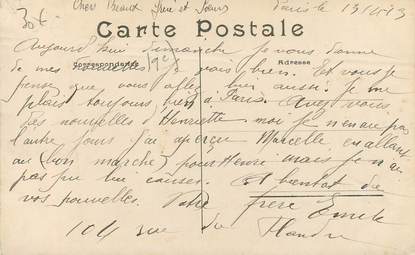 30f Cher Beaux frère et Sœurs Paris le 13/4/13
Carte Postale
Aujourd'hui dimanche je vous donne
Correspondance Adresse
de mes nouvelles je vais bien. Et vous je
pense que vous allez bien aussi. Je me
plais toujours bien à Paris. Avez vous
des nouvelles d'Henriette moi je n'en ai pas
l'autre jours j'ai aperçu Marcelle en allant
au bon marché pour Henri mais je n'ai
pas pu lui causer. Et bientot de
vos nouvelles. Votre frère Emile
104 rue de Flandre